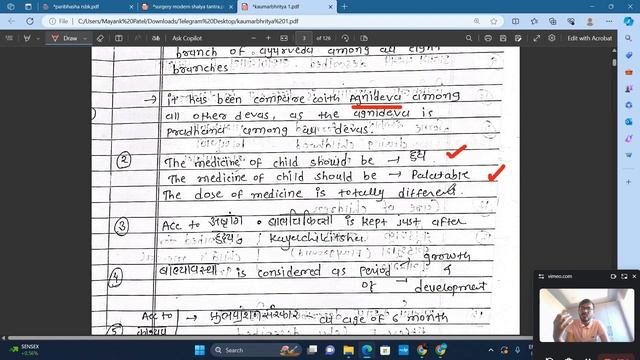 *paribhasha nbk.pdf
*surgery modern shalya tantra.
*kaumarbhritya 1.pdf
File
C:/Users/Mayank%20Patel/Downloads/Telegram%20Desktop/kaumarbhritya%201.pdf
Draw
3 of 126
Edit with Acrobat
branch of ayurveda among all eight
branches
→ it has been compare with Agnideva among
all other devas, as the agnideva is
pradhana among all devas.
② The medicine of child should be →
The medicine of child should be → Palatable
The dose of medicine is totally different.
③ Acc to is kept just after
kayachikitsha
④ बाल्यावस्था is considered as period of → growth & development
Acc to → at age of 6 month
vimeo.com
SENSEX
+0.56%
Search
ENG
IN